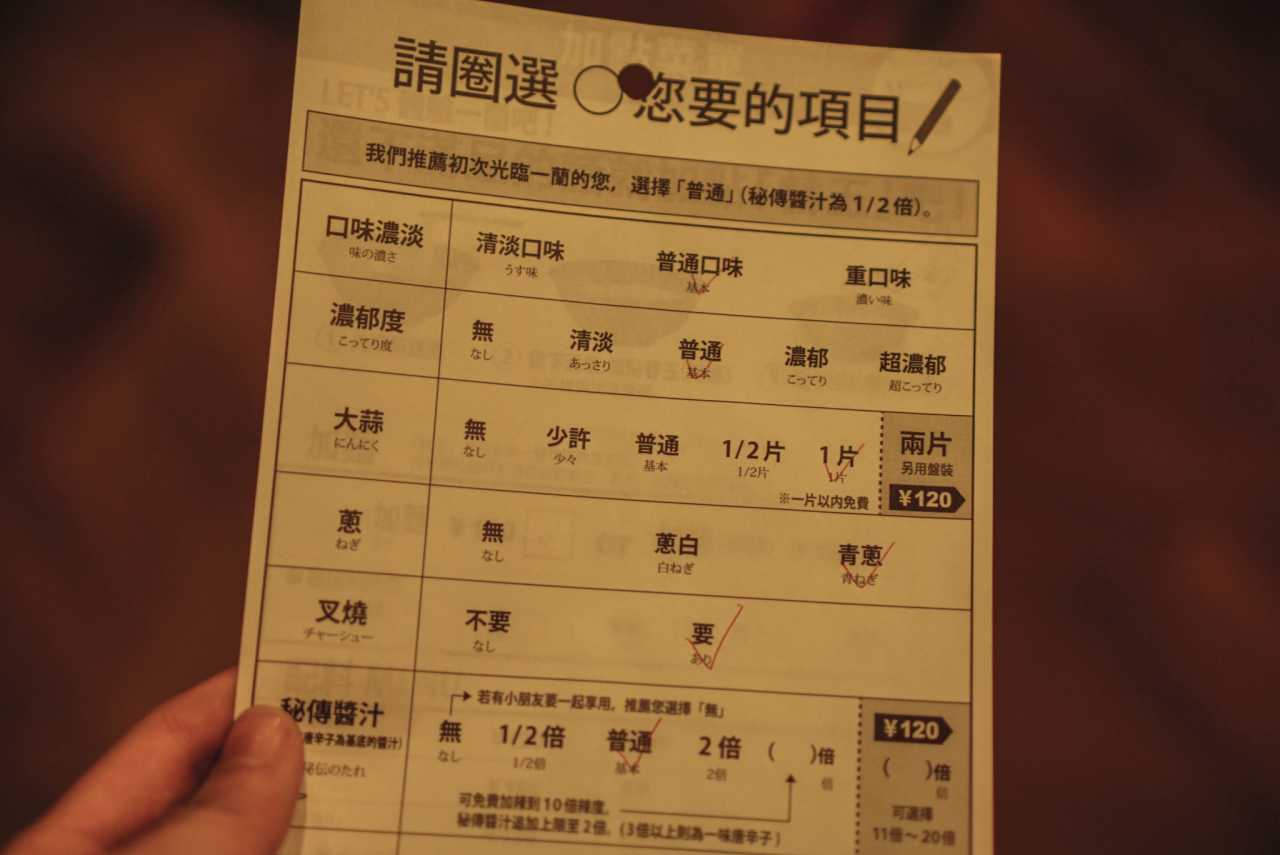 請圈選○您要的項目
我們推薦初次光臨一蘭的您，選擇「普通」（秘傳醬汁為1/2倍）。
口味濃淡 清淡口味 普通口味 重口味
味の濃さ うす味 基本 濃い味
濃郁度 無 清淡 普通 濃郁 超濃郁
こってり度 なし あっさり 基本 こってり 超こってり
大蒜 無 少許 普通 1/2片 1片 兩片
にんにく なし 少々 基本 1/2片 1片 另用盤裝
※一片以內免費 ¥120
蔥 無 蔥白 青蔥
ねぎ なし 白ねぎ 青ねぎ
叉燒 不要 要
チャーシュー なし あり
若有小朋友要一起享用，推薦您選擇「無」
秘傳醬汁 無 1/2倍 普通 2倍 （ ）倍 ¥120
唐辛子為基底的醬汁） なし 1/2倍 基本 2倍 倍 （ ）倍
秘伝のたれ 倍
可免費加辣到10倍辣度， 可選擇
秘傳醬汁追加上限至2倍。（3倍以上則為一味唐辛子） 11倍～20倍